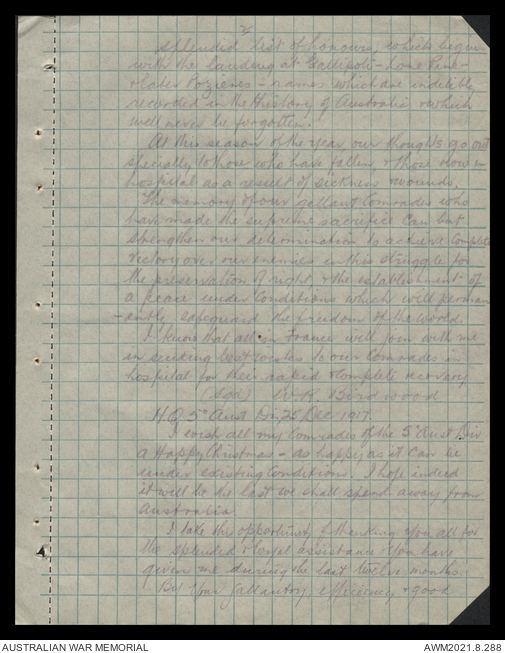 2
splendid list of honours, which began
with the landing at Gallipoli - Lone Pine -
& later Pozieres - names which are indelibly
recorded in the History of Australia & which
will never be forgotten.
At this season of the year our thoughts go out
specially to those who have fallen, & those now in
hospital as a result of sickness & wounds.
The memory of our gallant Comrades who
have made the supreme sacrifice can but
strengthen our determination to achieve complete
victory over our enemies in this struggle for
the preservation of right, & the establishment of
a peace under conditions which will perman
- ently safeguard the freedom of the World.
I know that all in France will join with me
in sending best wishes to our Comrades in
hospital for their rapid & complete recovery
(Sgd) W.R. Birdwood
H.Q. 5th Aust Div 25 Dec 1917.
I wish all my Comrades of the 5th Aust Div
a Happy Christmas - as happy as it can be
under existing conditions. I hope indeed
it will be the last we shall spend away from
Australia
I take this opportunity of thanking you all for
the splendid & loyal assistance you have
given me during the last twelve months.
By your gallantry, efficiency & good
AUSTRALIAN WAR MEMORIAL
AWM2021.8.288